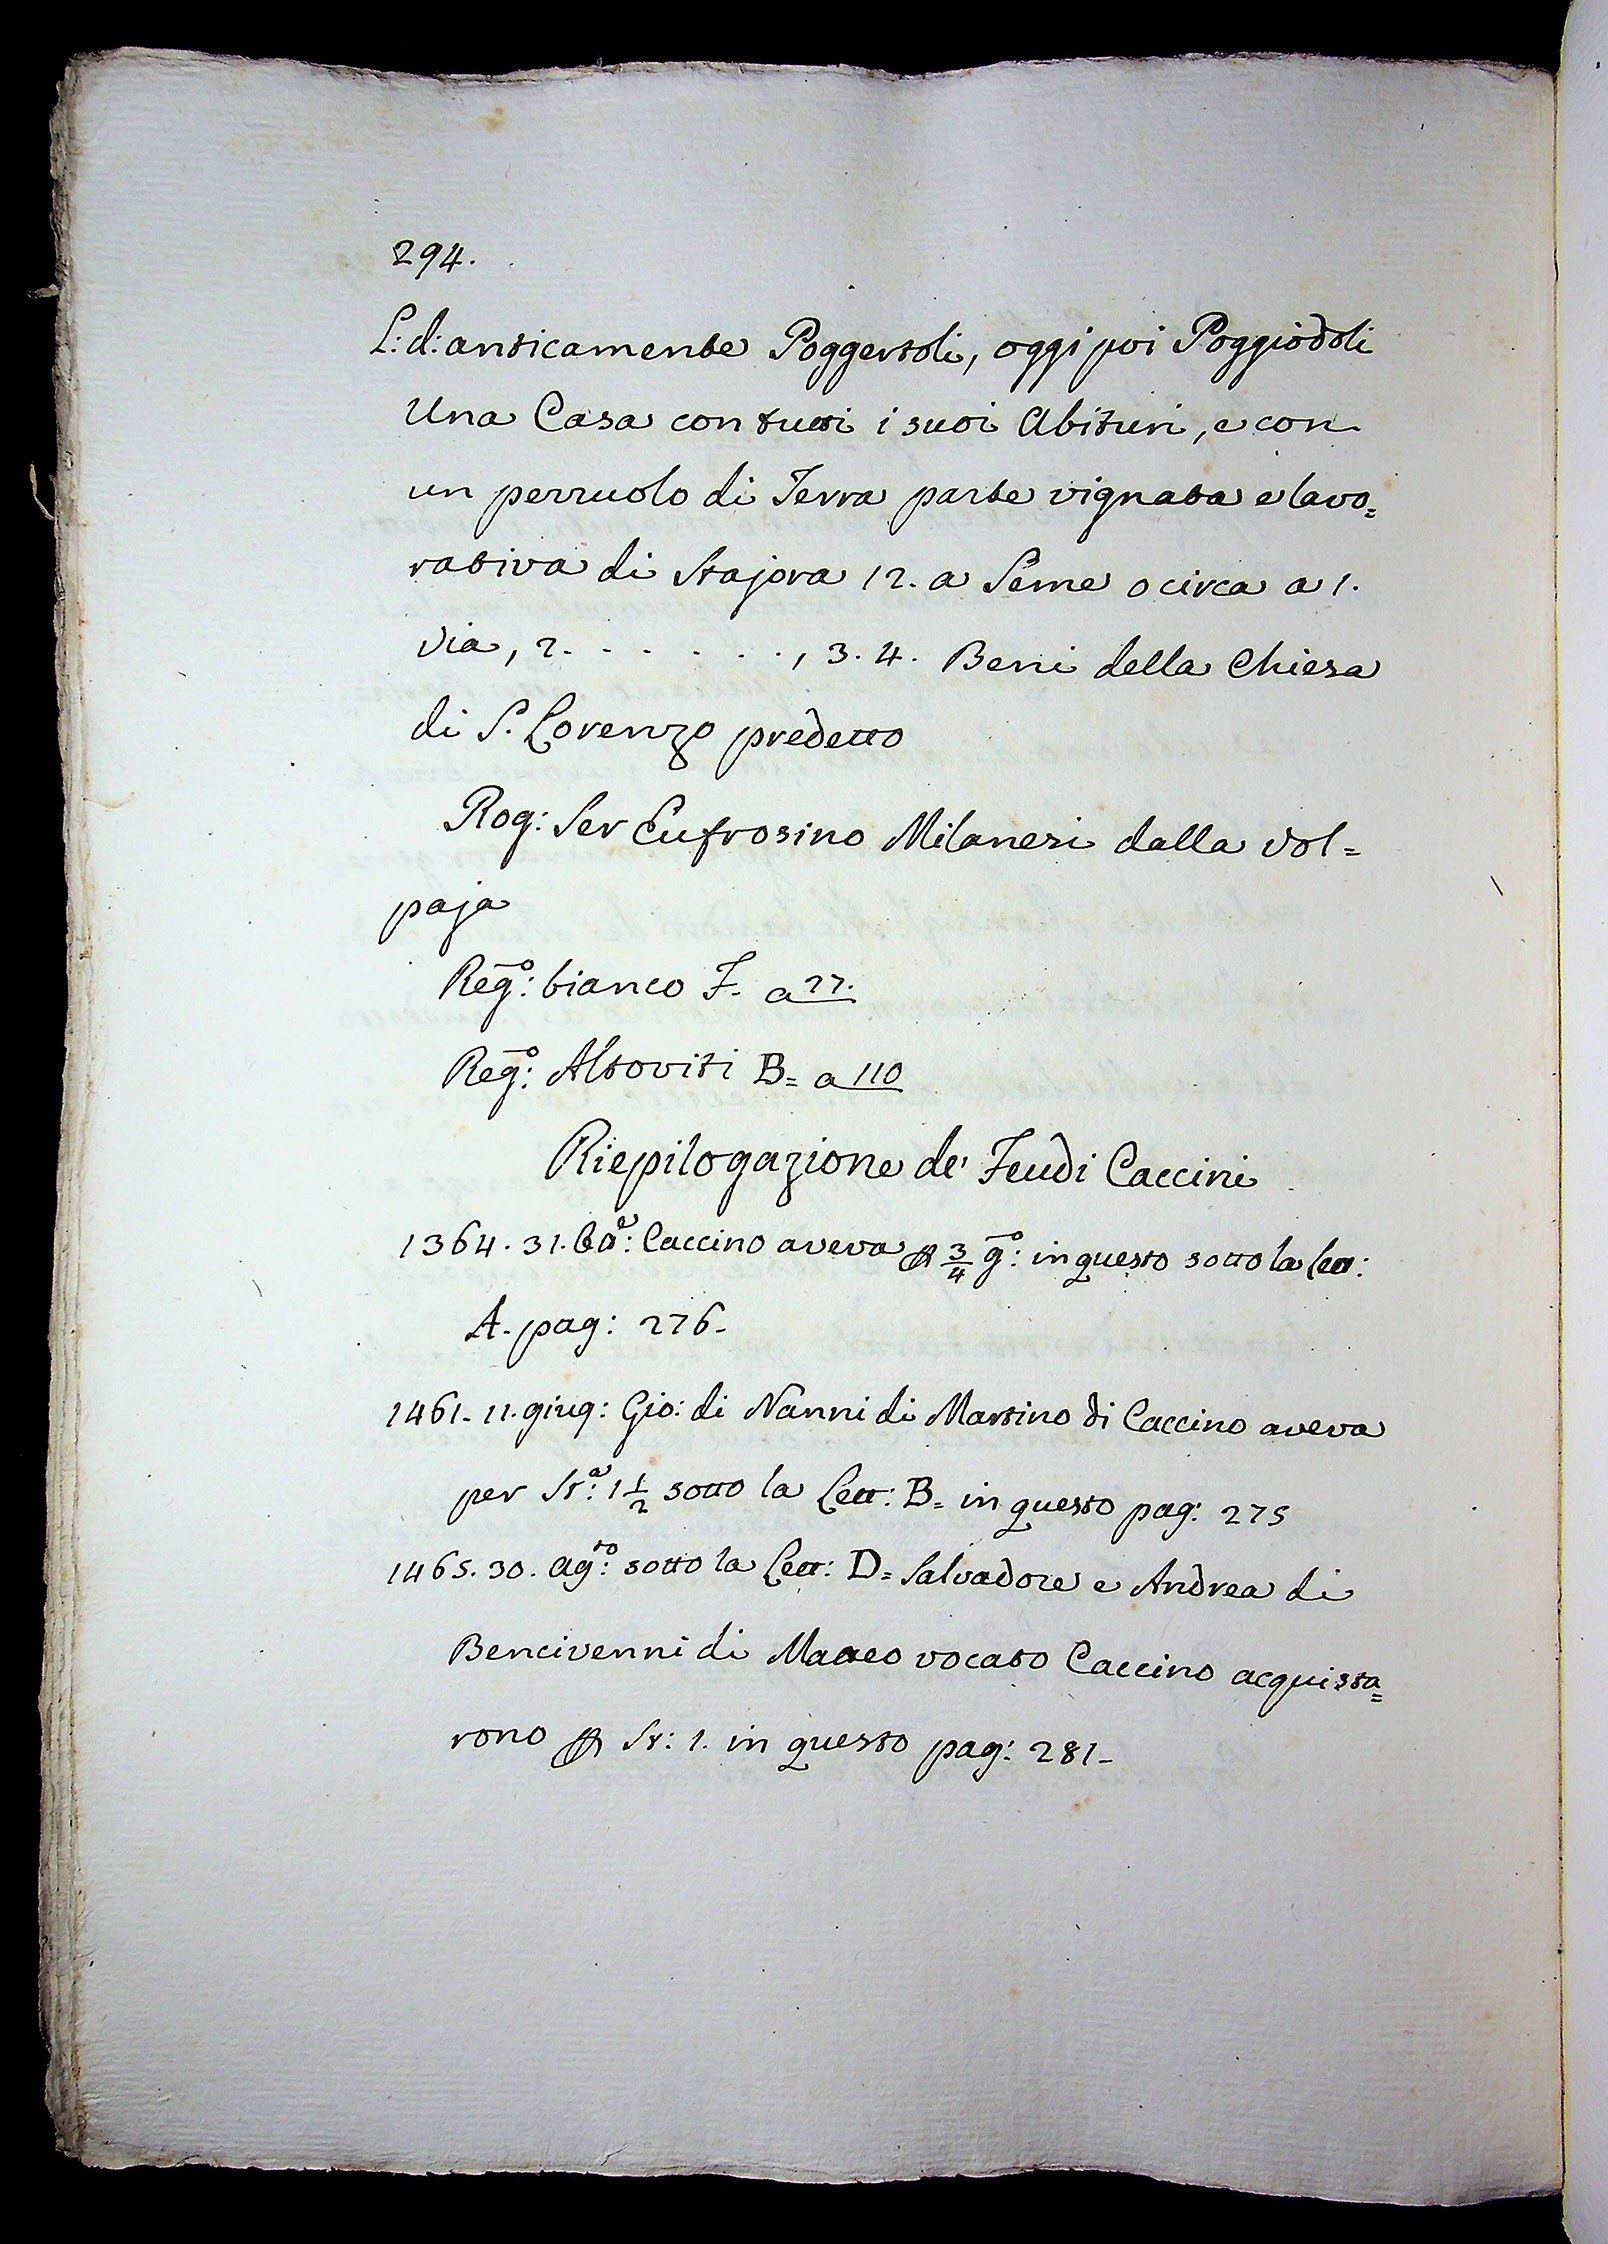 294.
L: d: anticamente Poggertoli, oggi poi Poggiodoli
Una Casa con tutti i suoi Abituri, e con
un pezzuolo di Terra parte vignata e lavo=
rativa di Stajora 12. a Seme o circa a 1.
via, 2. . . . . . ., 3. 4. Beni della Chiesa
di S. Lorenzo predetto
Rog: Ser Eufrosino Milanesi dalla Vol=
paja
Reg:o bianco F. a 27.
Reg:o Altoviti B= a 110
Riepilogazione de' Feudi Caccini
1364. 31. Caccino aveva 3/4 g:o in questo sotto la Lett:
A. pag: 276.
1461. 11. giug: Gio: di Nanni di Martino di Caccino aveva
per St:a 1 1/2 sotto la Lett: B= in questo pag: 275
1465. 30. Ag:to sotto la Lett: D= Salvadore e Andrea di
Bencivenni di Matteo vocato Caccino acquista=
rono St: 1. in questo pag: 281.